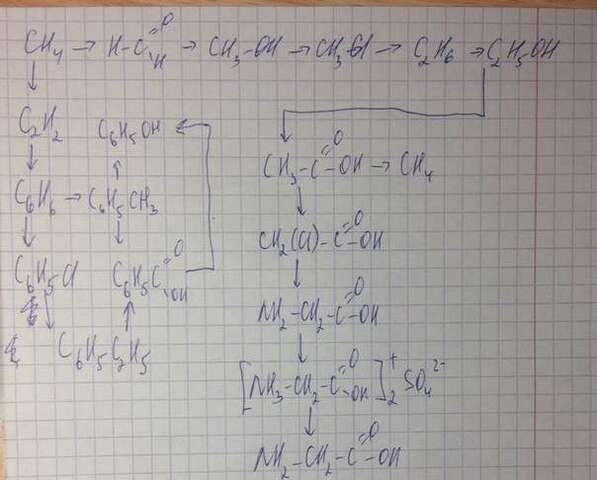 CH4 → H-C=O H → CH3-OH → CH3Cl → C2H6 → C2H5-OH
C2H2 C6H5OH
CH3-C=O -OH → CH4
C6H6 → C6H5CH3
CH2(Cl)-C=O -OH
C6H5Cl C6H5C=O OH
NH2-CH2-C=O -OH
C6H5C2H5
[NH3-CH2-C=O -OH]2+ SO4 2-
NH2-CH2-C=O -OH